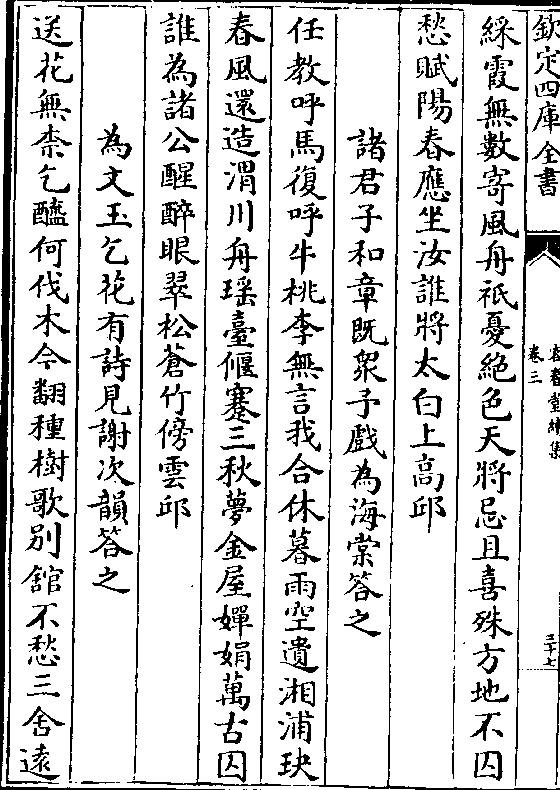 欽定四庫全書
卷三
三十七
綵霞無數寄風舟祇憂絶色天將忌且喜殊方地不囚
愁賦陽春應坐汝誰將太白上高邱
諸君子和章既衆予戲為海棠答之
任教呼馬復呼牛桃李無言我合休暮雨空遺湘浦玦
春風還造渭川舟瑶臺偃蹇三秋夢金屋嬋娟萬古囚
誰為諸公醒醉眼翠松蒼竹傍雲邱
為文玉乞花有詩見謝次韻答之
送花無柰乞醯何伐木今翻種樹歌别舘不愁三舍遠